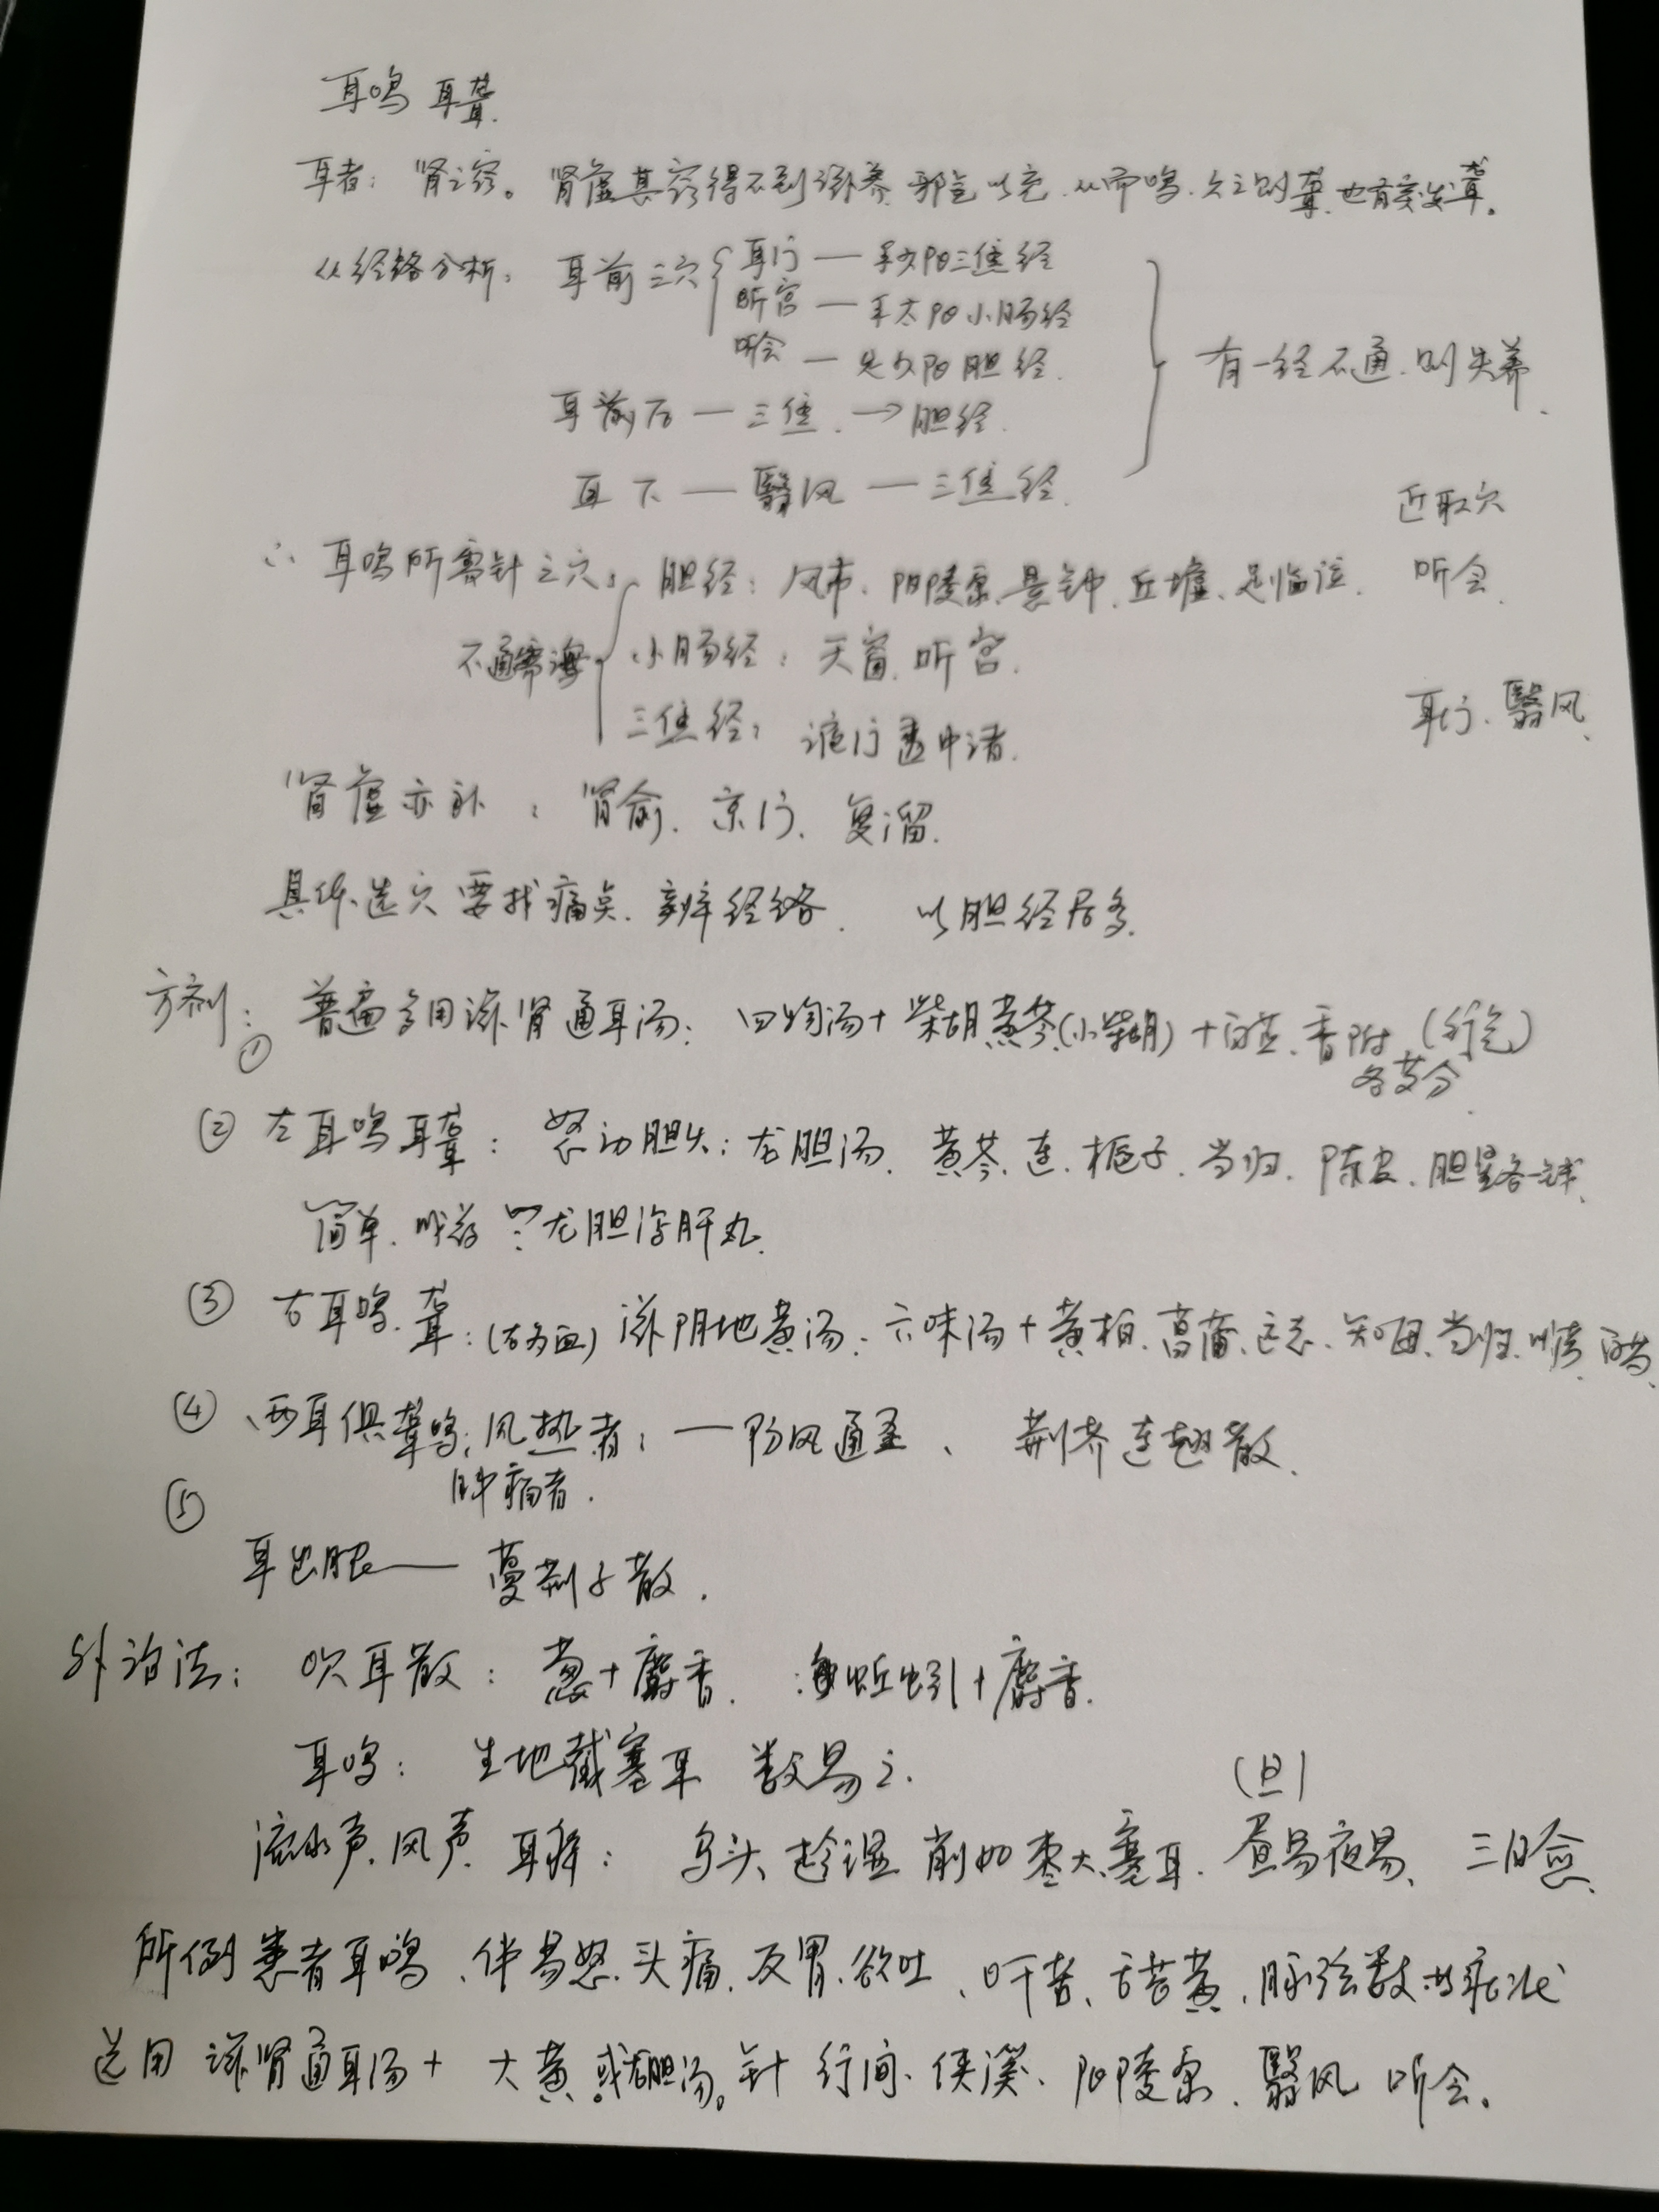 耳鸣 耳聋.
耳者：肾之窍。肾虚其窍得不到滋养 邪气以充.从而鸣.久之则聋.也有突发聋。
从经络分析： 耳前三穴 { 耳门 — 手少阳三焦经
听宫 — 手太阳小肠经
听会 — 足少阳胆经.
有一经不通.则失养.
耳前后 — 三焦. → 胆经.
耳下 — 翳风 — 三焦经.
近取穴
∴ 耳鸣所需针之穴： 胆经：风市、阳陵泉.悬钟.丘墟、足临泣. 听会.
小肠经：天窗.听宫.
三焦经： 液门透中渚. 耳门、翳风、
肾虚亦补：肾俞.京门.复溜.
具体选穴要找痛点.辨经络. 以胆经居多.
方剂：① 普遍多用滋肾通耳汤： 四物汤+柴胡黄芩(小柴胡)+白芷.香附(行气)
各等分.
② 左耳鸣耳聋： 怒动胆火：龙胆汤.黄芩.连.栀子.当归.陈皮.胆星各一钱.
简单. 龙胆泻肝丸.
③ 右耳鸣.聋：(右为血) 滋阴地黄汤：六味汤+黄柏.菖蒲.远志.知母.当归.
④ 两耳俱聋鸣：风热者：— 防风通圣、 荆芥连翘散.
肿痛者.
⑤
耳出脓 — 蔓荆子散.
外治法： 吹耳散：葱+麝香. 蚯蚓+麝香.
耳鸣： 生地截塞耳 数易之.
(旦)
流水声.风声.耳痒： 乌头趁湿削如枣大.塞耳.昼易夜易、三日愈.
所例患者耳鸣、伴易怒.头痛.反胃.欲吐、口干苦、舌苔黄、脉弦数
选用滋肾通耳汤+大黄.或龙胆汤。针 行间、侠溪、阳陵泉、翳风 听会。